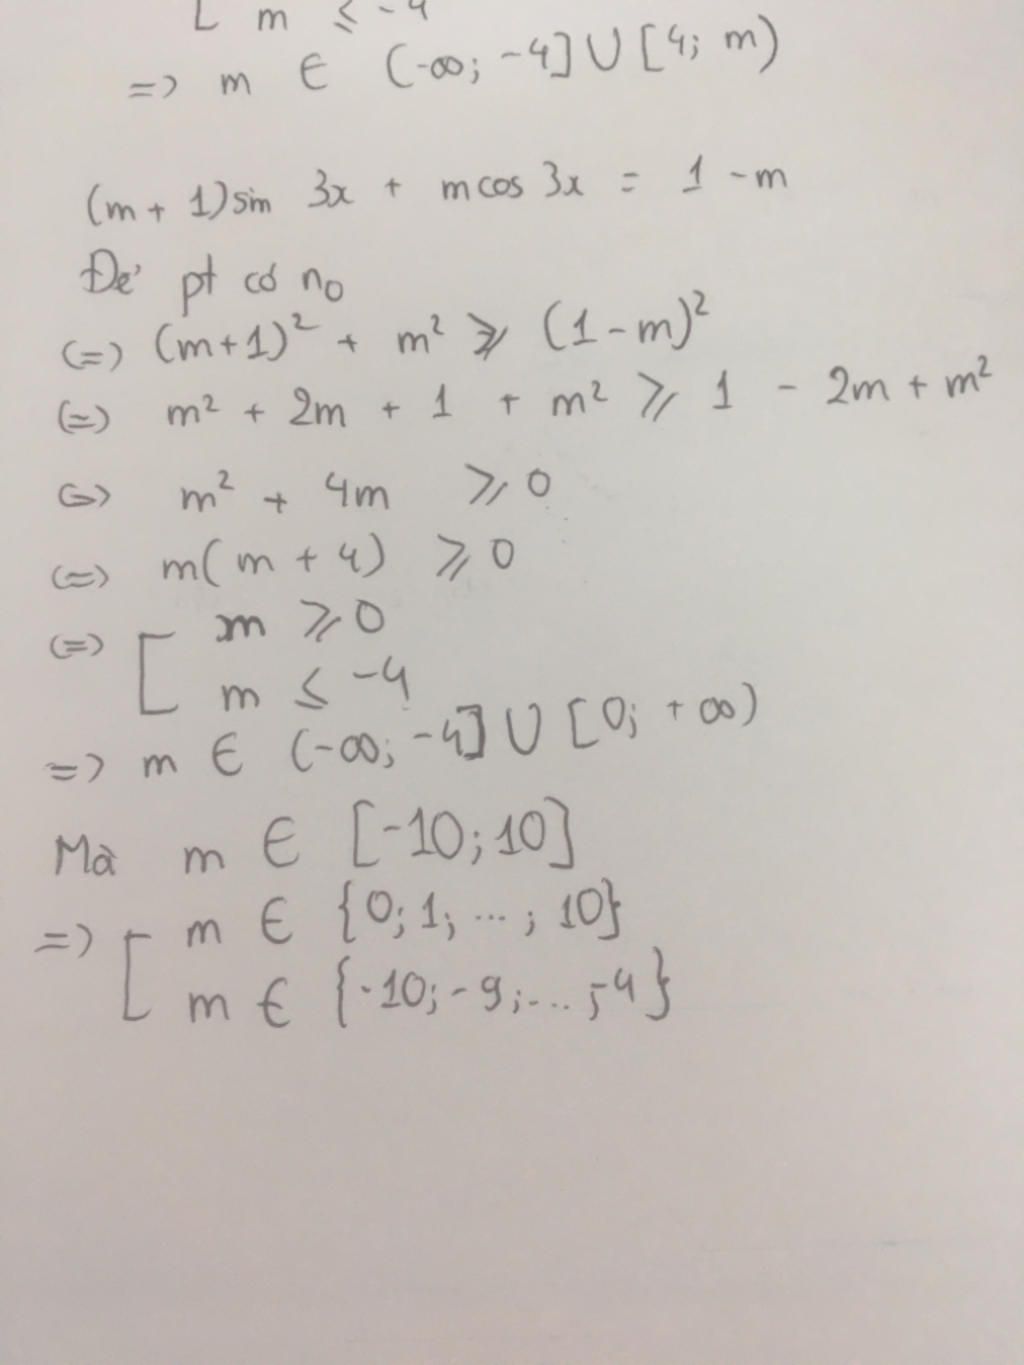 [ m ≤ -4
=> m ∈ (-∞; -4] ∪ [4; m)
(m + 1)sin 3x + mcos 3x = 1 - m
Để pt có n₀
(=) (m+1)² + m² ≥ (1-m)²
(=) m² + 2m + 1 + m² ≥ 1 - 2m + m²
(=) m² + 4m ≥ 0
(=) m(m + 4) ≥ 0
(=) [ m ≥ 0
m ≤ -4
=> m ∈ (-∞; -4] ∪ [0; +∞)
Mà m ∈ [-10; 10]
=> [ m ∈ {0; 1; ...; 10}
m ∈ {-10; -9; ...; -4}